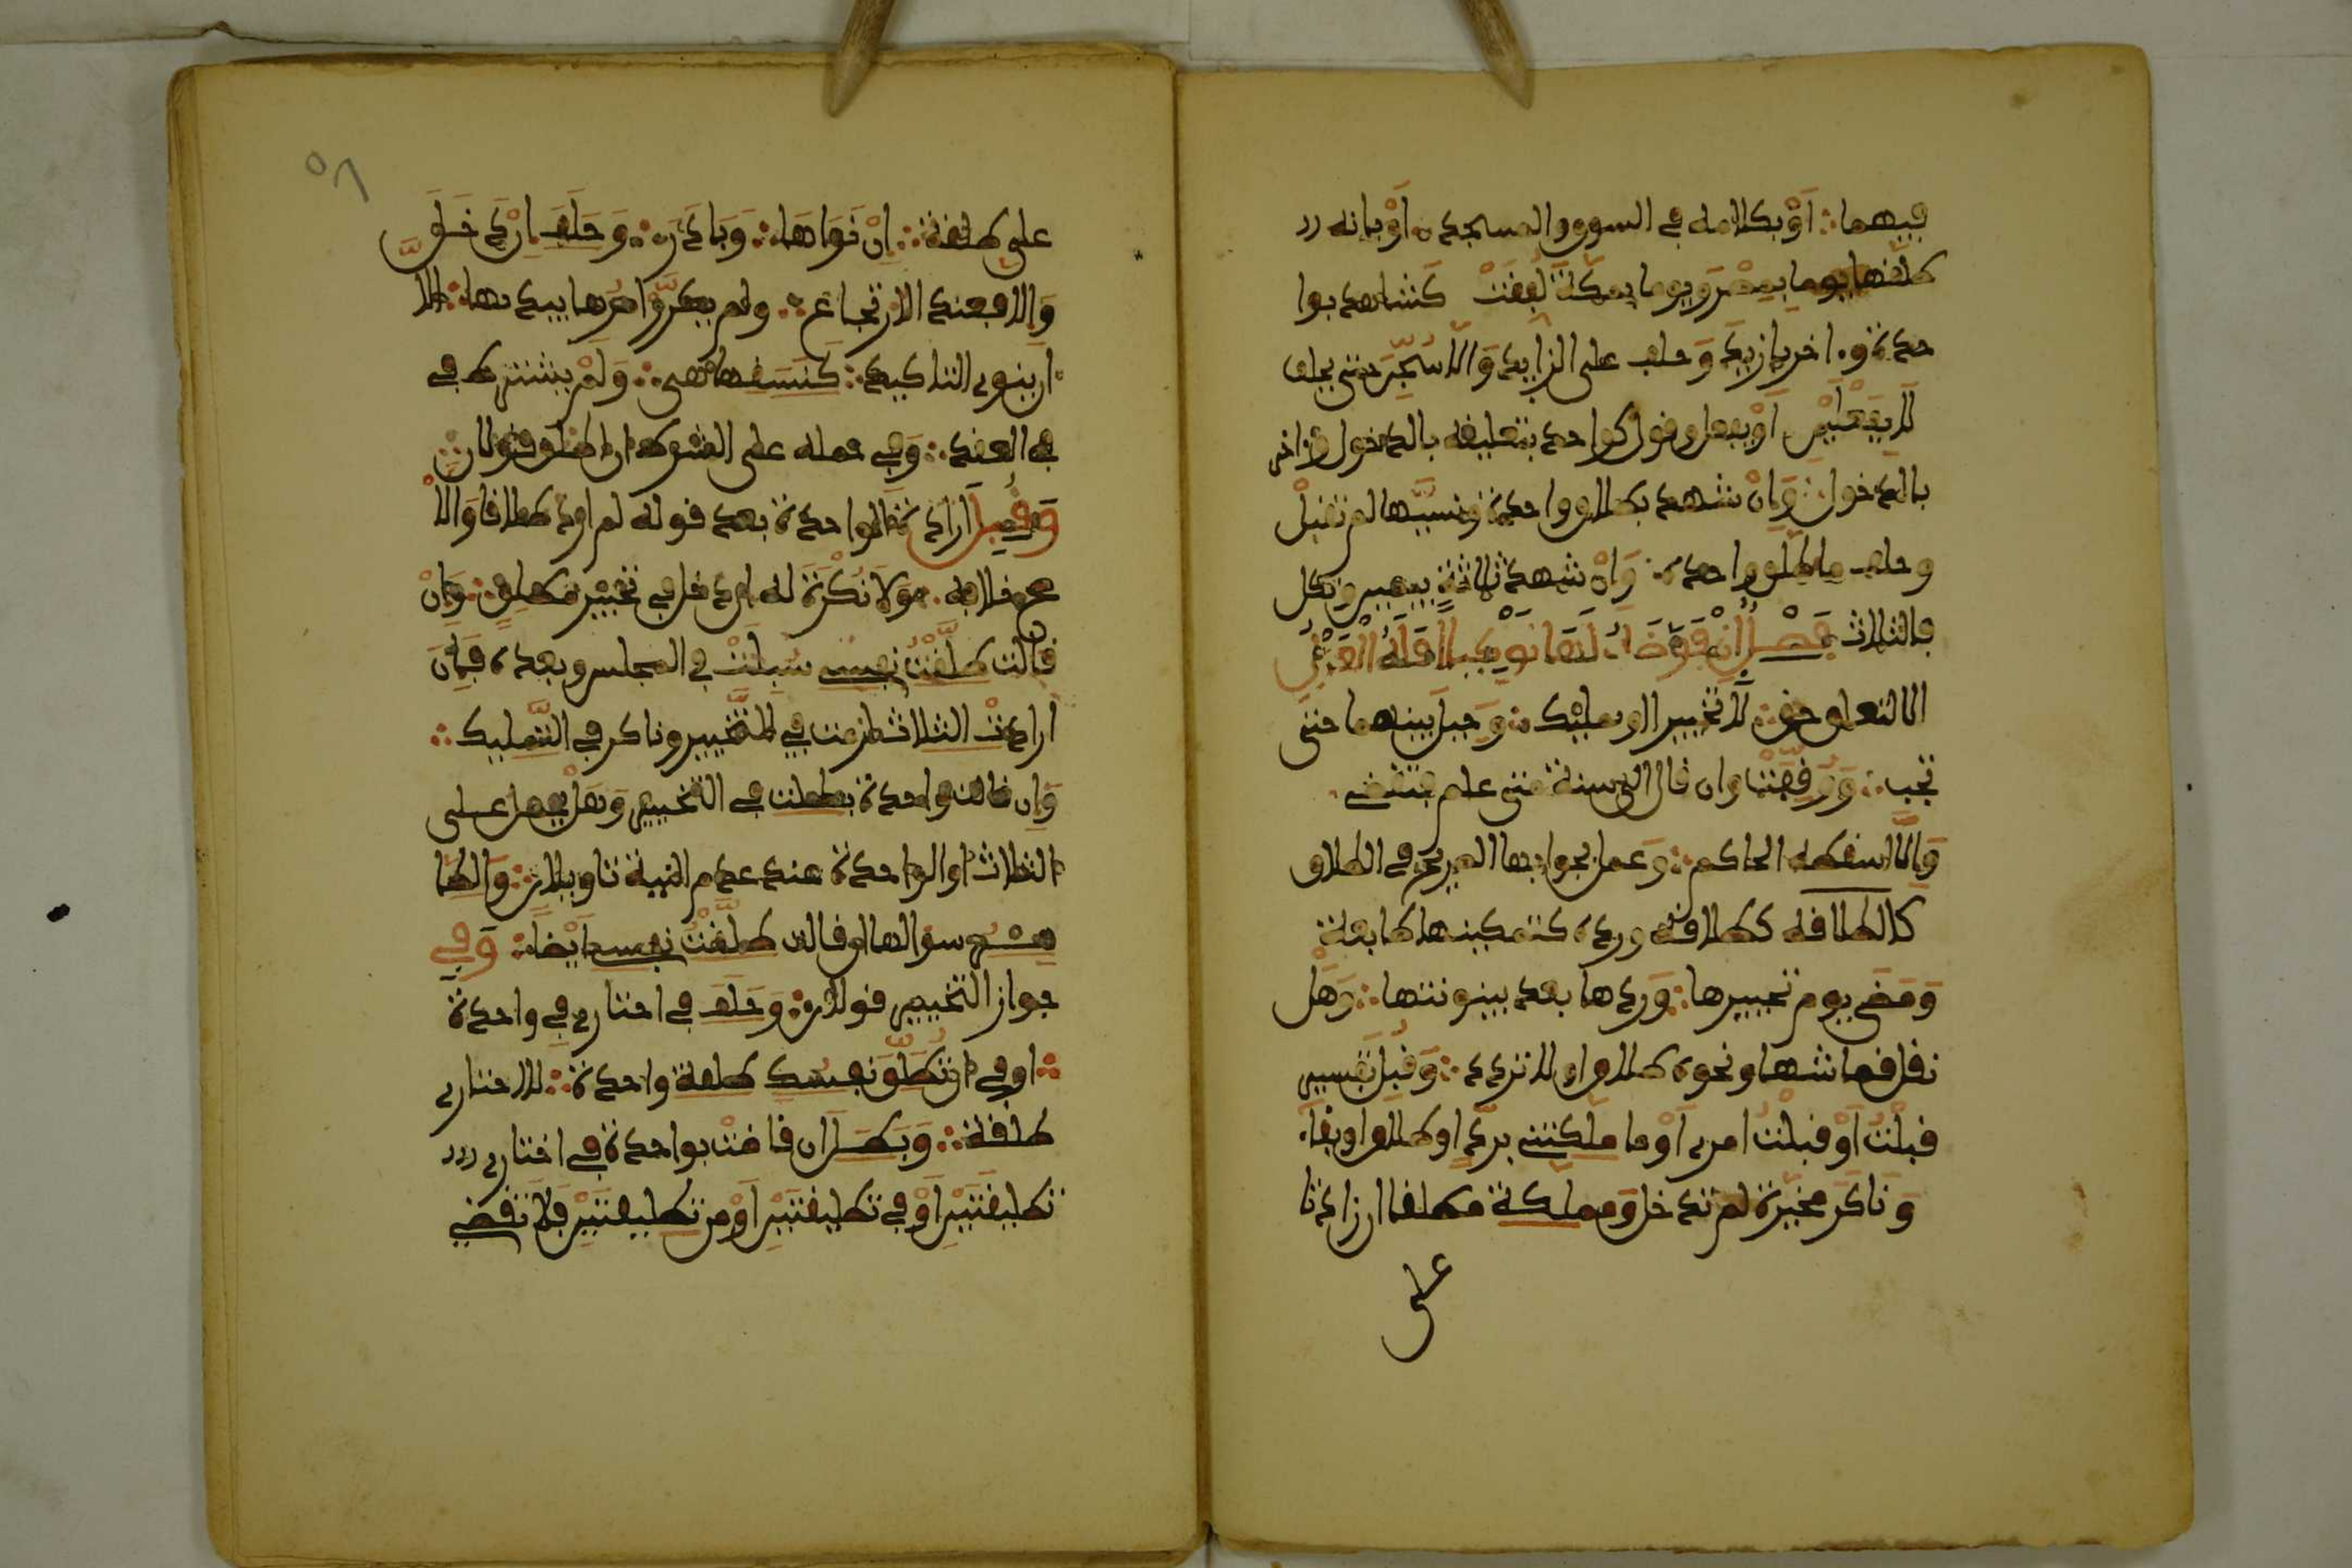 فيهما أو بكلامه في السوق والمسجد أو بأنه
طلقها يوما بمصر ويوما بمكة لفقت كشاهد بوا
حدة و ءاخر بأزيد وحلف على الزايد وإلا سجن حتى يحلف
لا بفعلين أو بفعل وقول كواحد بتعليقه بالدخول وءاخر
بالدخول وإن شهد بطلاق واحدة ونسيها لم تقبل
وحلف ما طلق واحدة وإن شهد ثلاثة بيمين ونكل
فالثلاث فصل إن فوضه لها توكيلا فله العزل
إلا لتعلق حق لا تخييرا أو تمليك وحيل بينهما حتى
تجيب ووقفت وإن قال إلى سنة متى علم فتقضي
وإلا أسقطه الحاكم وعمل بجوابها الصريح في الطلاق
كالطلاقه كطلاقه ورده كتمكينها طايعة
ومضي يوم تخييرها وردها بعد بينونتها وهل
نقل قماشها ونحوه طلاق أو لا تردد وقبل تفسير
قبلت أو قبلت أمري أو ما ملكتني برد أو طلاق أو بقاء
وناكر مخيرة لم تدخل ومملكة مطلقا إن زادتا
على
٥٨
على طلقة إن نواها وبادر وحلف إن دخل
وإلا فعند الارتجاع ولم يكرر أمرها بيدها إلا
أن ينوي التاكيد كنسقها هي ولم يشترط في
في العقد وفي حمله على الشرط إن أطلق قولان
وقبل إرادة الواحدة بعد قوله لم أرد طلاقا والا
صح خلافه ولا نكرة له إن دخل في تخيير مطلق وإن
قالت طلقت نفسي سيلت في المجلس وبعده فإن
أرادت الثلاث لزمت في التخيير وناكر في التمليك
وإن قالت واحدة بطلت في التخيير وهل يحمل على
الثلاث أو الواحدة عند عدم النية تاويلان والظا
هر سؤالها إن قالت طلقت نفسي أيضا وفي
جواز التخيير قولان وحلف في اختاري في واحدة
أو في أن تطلق نفسك طلقة واحدة لا اختاري
طلقة وبطل إن قضت بواحدة في اختاري
تطليقتين أو في تطليقتين أو من تطليقتين فلا تقضي